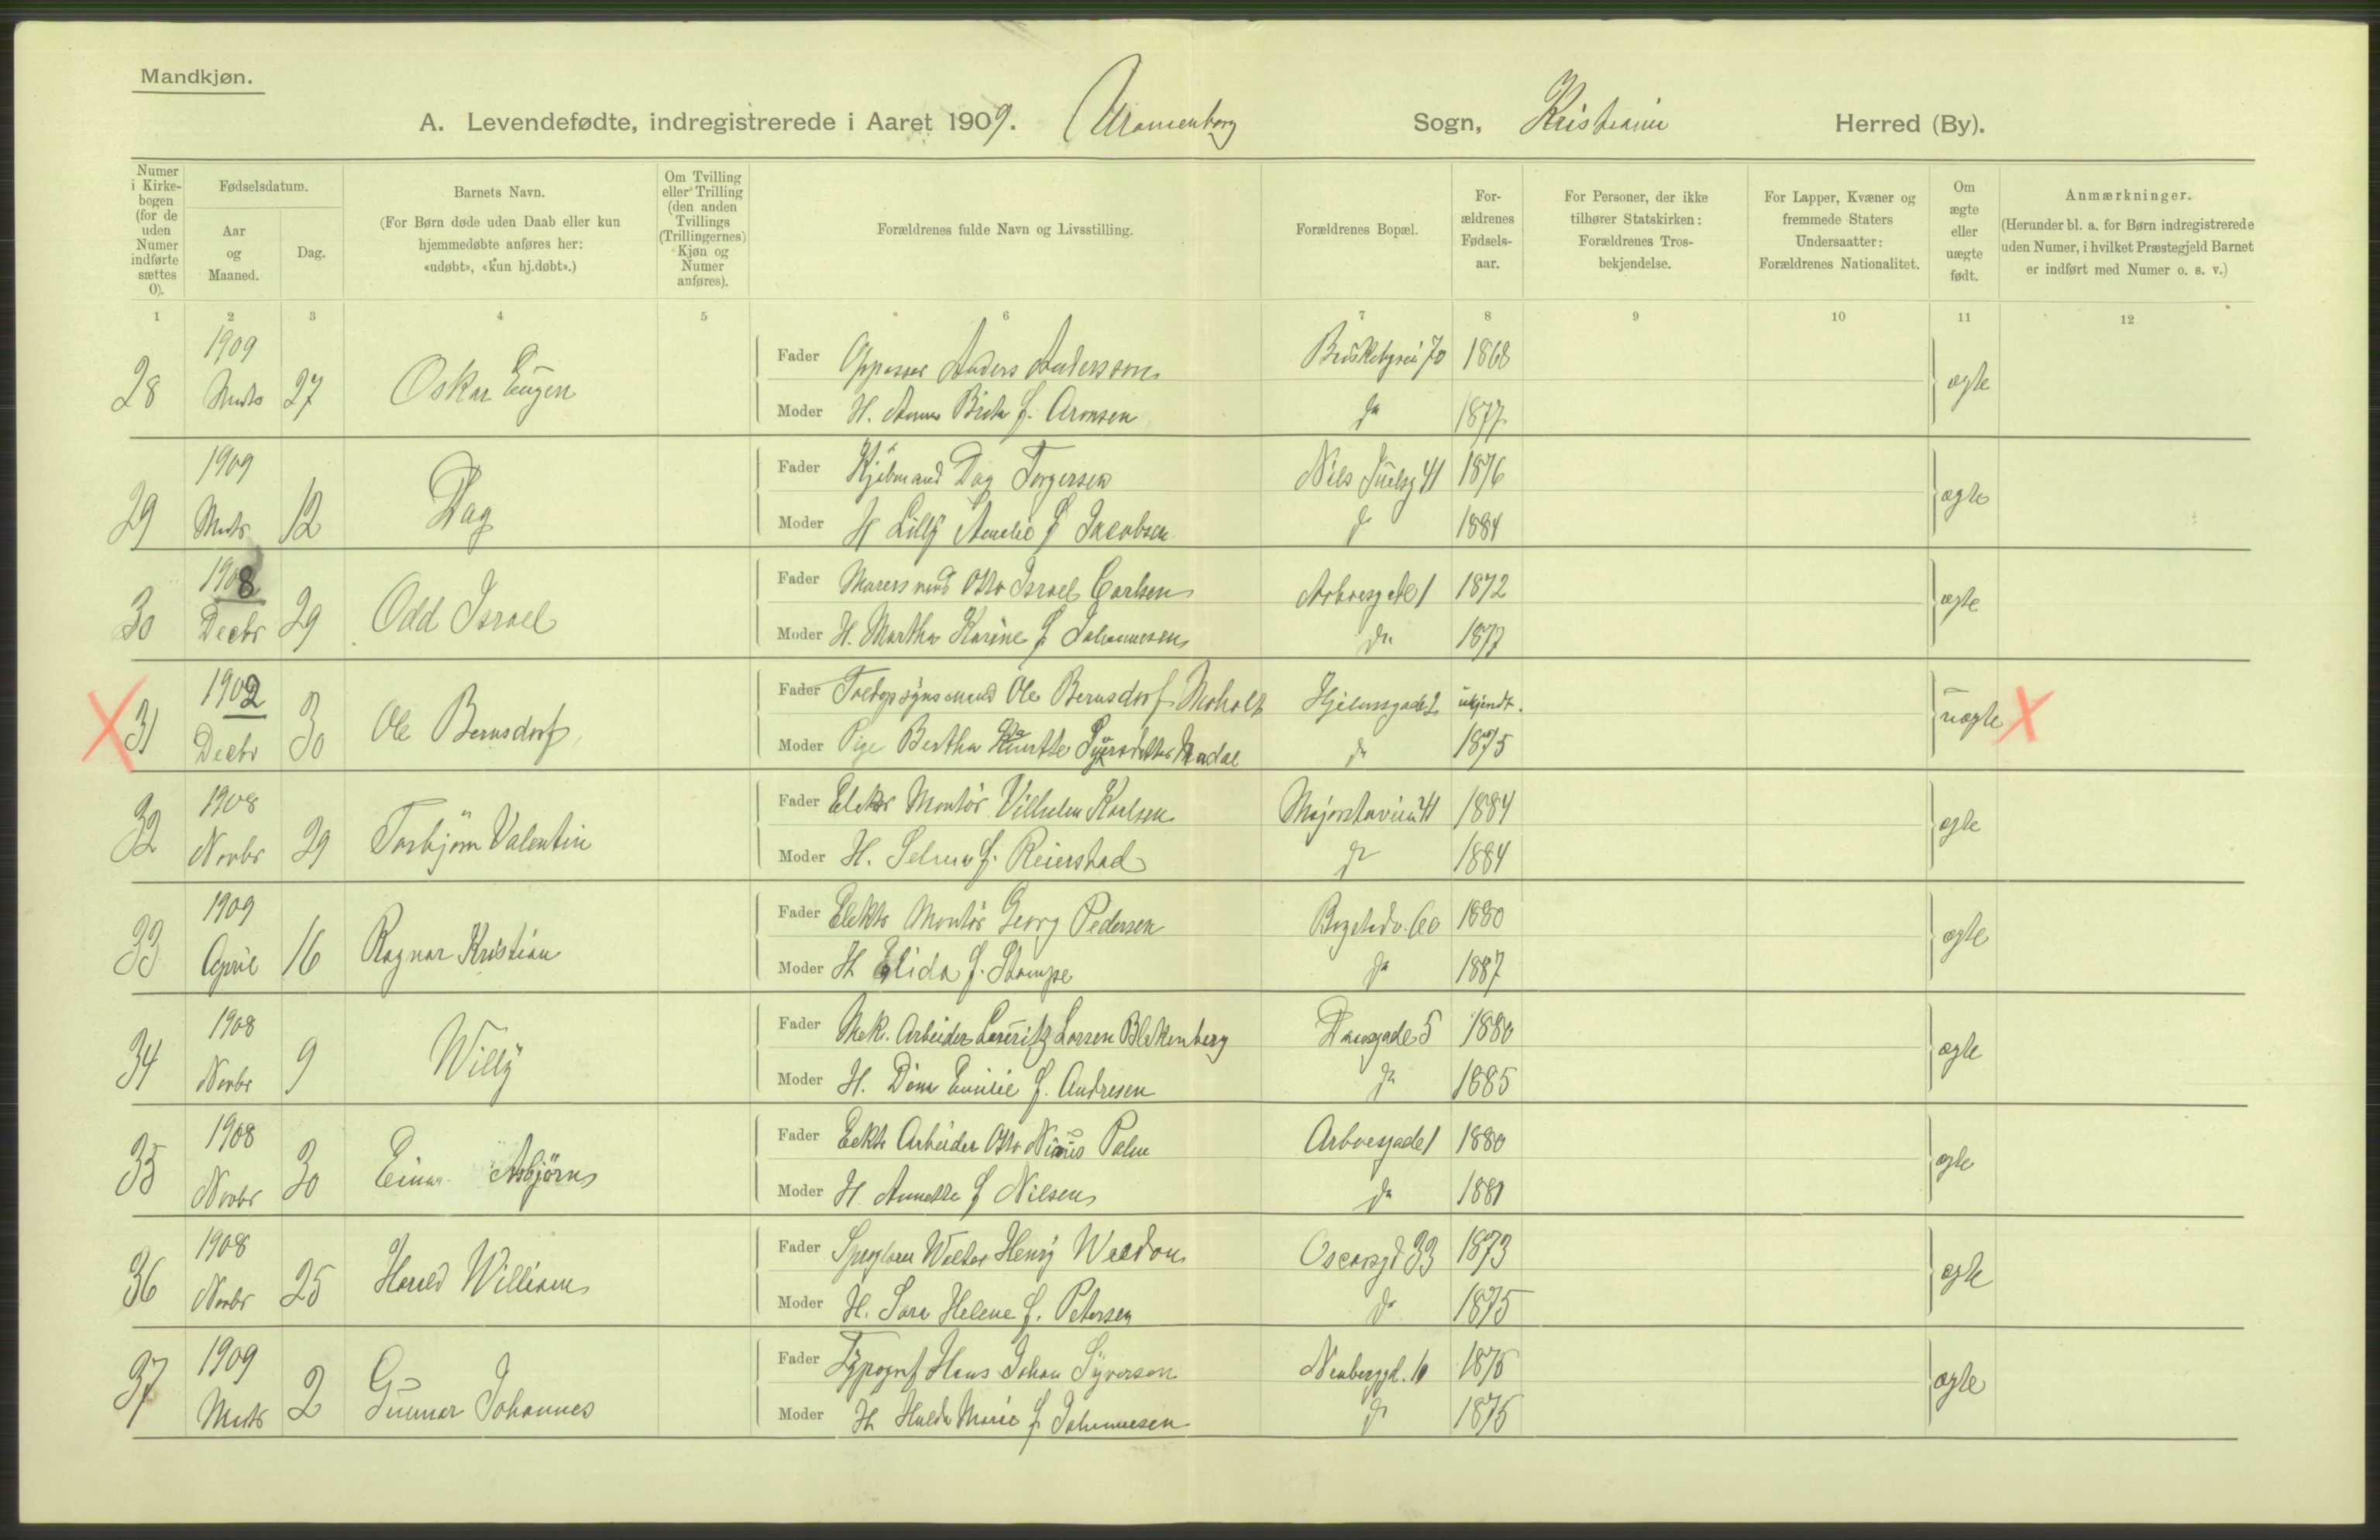 Mandkjøn.
A. Levendefødte, indregistrerede i Aaret 1909. Uranienborg Sogn, Kristiania Herred (By).
Numer i Kirkebogen (for de uden Numer indførte sættes 0).
Fødselsdatum.
Aar og Maaned.
Dag.
Barnets Navn.
(For Børn døde uden Daab eller kun hjemmedøbte anføres her: «udøbt», «kun hj.døbt».)
Om Tvilling eller Trilling (den anden Tvillings (Trillingernes) Kjøn og Numer anføres).
Forældrenes fulde Navn og Livsstilling.
Forældrenes Bopæl.
Forældrenes Fødselsaar.
For Personer, der ikke tilhører Statskirken: Forældrenes Trosbekjendelse.
For Lapper, Kvæner og fremmede Staters Undersaatter: Forældrenes Nationalitet.
Om ægte eller uægte født.
Anmærkninger.
(Herunder bl. a. for Børn indregistrerede uden Numer, i hvilket Præstegjeld Barnet er indført med Numer o. s. v.)
1 2 3 4 5 6 7 8 9 10 11 12
28 1909 Marts 27 Oskar Eugen
Fader Oppasser Anders Andersson Briskebyvei 70 1868 ægte
Moder H. Anna f. Aronsen do 1877
29 1909 Marts 12 Dag
Fader Kjøbmand Dag Torgersen Niels Juelsg 41 1876 ægte
Moder H Lilly Amelie f Jacobsen do 1884
30 1908 Decbr 29 Odd Israel
Fader Otto Israel Carlsen Arboesgade 1 1872 ægte
Moder H. Martha Karine f Johannesen do 1877
X 31 1902 Decbr 30 Ole Bernsdorf
Fader Toldopsynsmand Ole Bernsdorf Moholt ukjendt. uægte X
Moder Pige Bertha do 1875
32 1908 Novbr 29 Torbjørn Valentin
Fader Elektr Montør Vilhelm Karlsen Majorstuvein 41 1884 ægte
Moder H. Selma f. Reierstad do 1884
33 1909 April 16 Ragnar Kristian
Fader Elektr Montør Georg Pedersen Bogstadv. 60 1880 ægte
Moder H Elida f. Stampe do 1887
34 1908 Novbr 9 Willy
Fader Mek. Arbeider Lauritz Larsen Blekenberg Daasgade 5 1880 ægte
Moder H. Emilie f. Andresen do 1885
35 1908 Novbr 30 Einar Asbjørn
Fader Arbeider Otto Palm Arboesgade 1 1880 ægte
Moder H. Annette f Nilsen do 1881
36 1908 Novbr 25 Harald William
Fader Walter Henry Weedon Oscarsgd 33 1873 ægte
Moder H. Sara Helene f. Petersen do 1875
37 1909 Marts 2 Gunnar Johannes
Fader Typograf Hans Johan Syversen Neuberggd. 1875 ægte
Moder H Hulda Marie f Johannesen do 1875